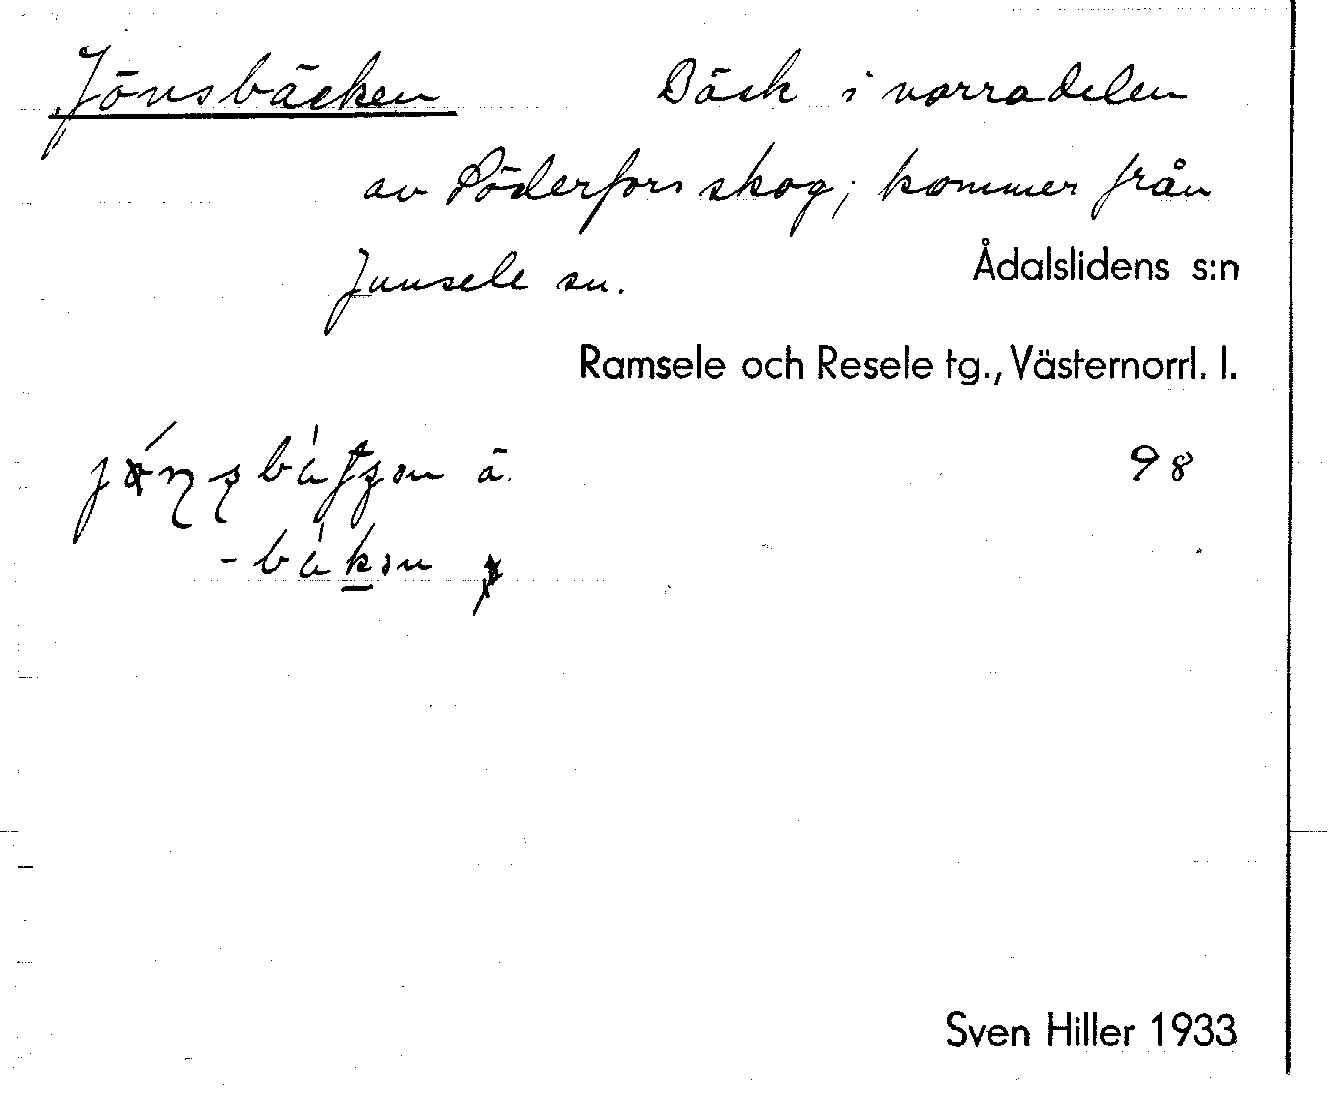 Jönsbäcken Bäck i norradelen
av Söderfors skog; kommer från
Junsele sn.
Ådalslidens s:n
Ramsele och Resele tg., Västernorrl. l.
ä. 98
Sven Hiller 1933